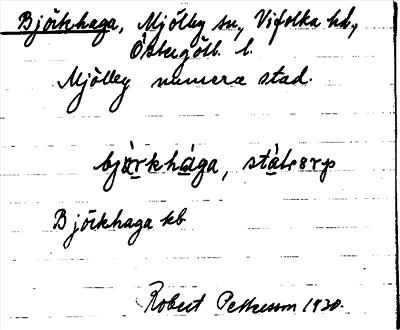 Björkhaga, Mjölby sn, Vifolka hd,
Östergötl. l.
Mjölby numera stad.
bjàrkhàga, stàtsrp
Björkhaga kb
Robert Pettersson 1920.